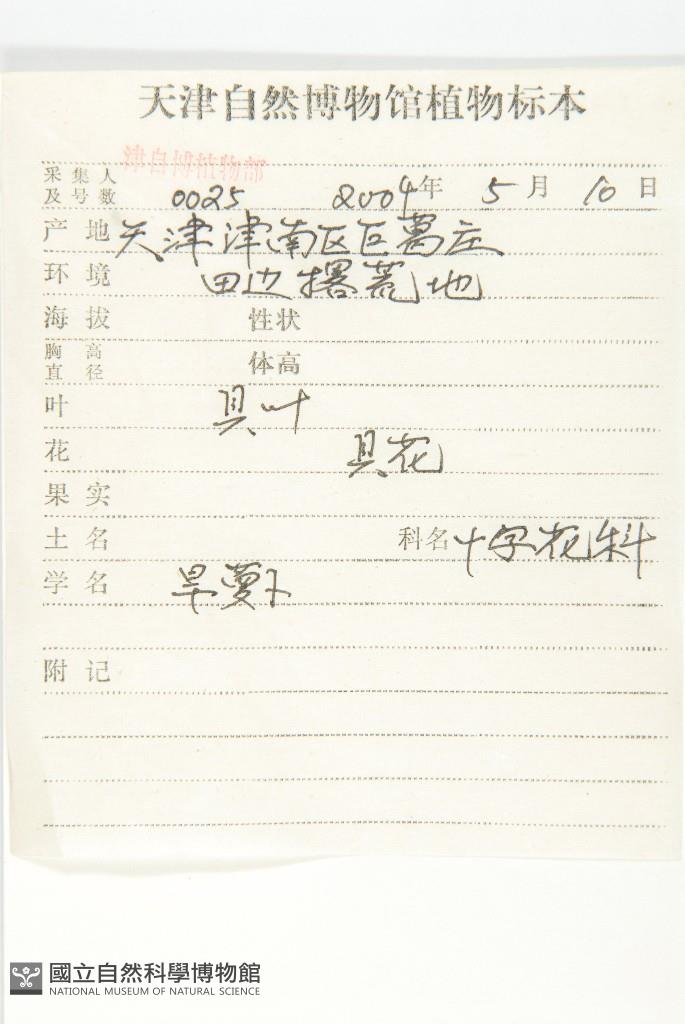 天津自然博物馆植物标本
津自博植物部
采集人
及号数 0025 2004年 5月 10日
产地 天津津南区巨葛庄
环境 田边撂荒地
海拔 性状
胸高
直径 体高
叶 具叶
花 具花
果实
土名 科名 十字花科
学名 旱萝卜
附记
國立自然科學博物館
NATIONAL MUSEUM OF NATURAL SCIENCE